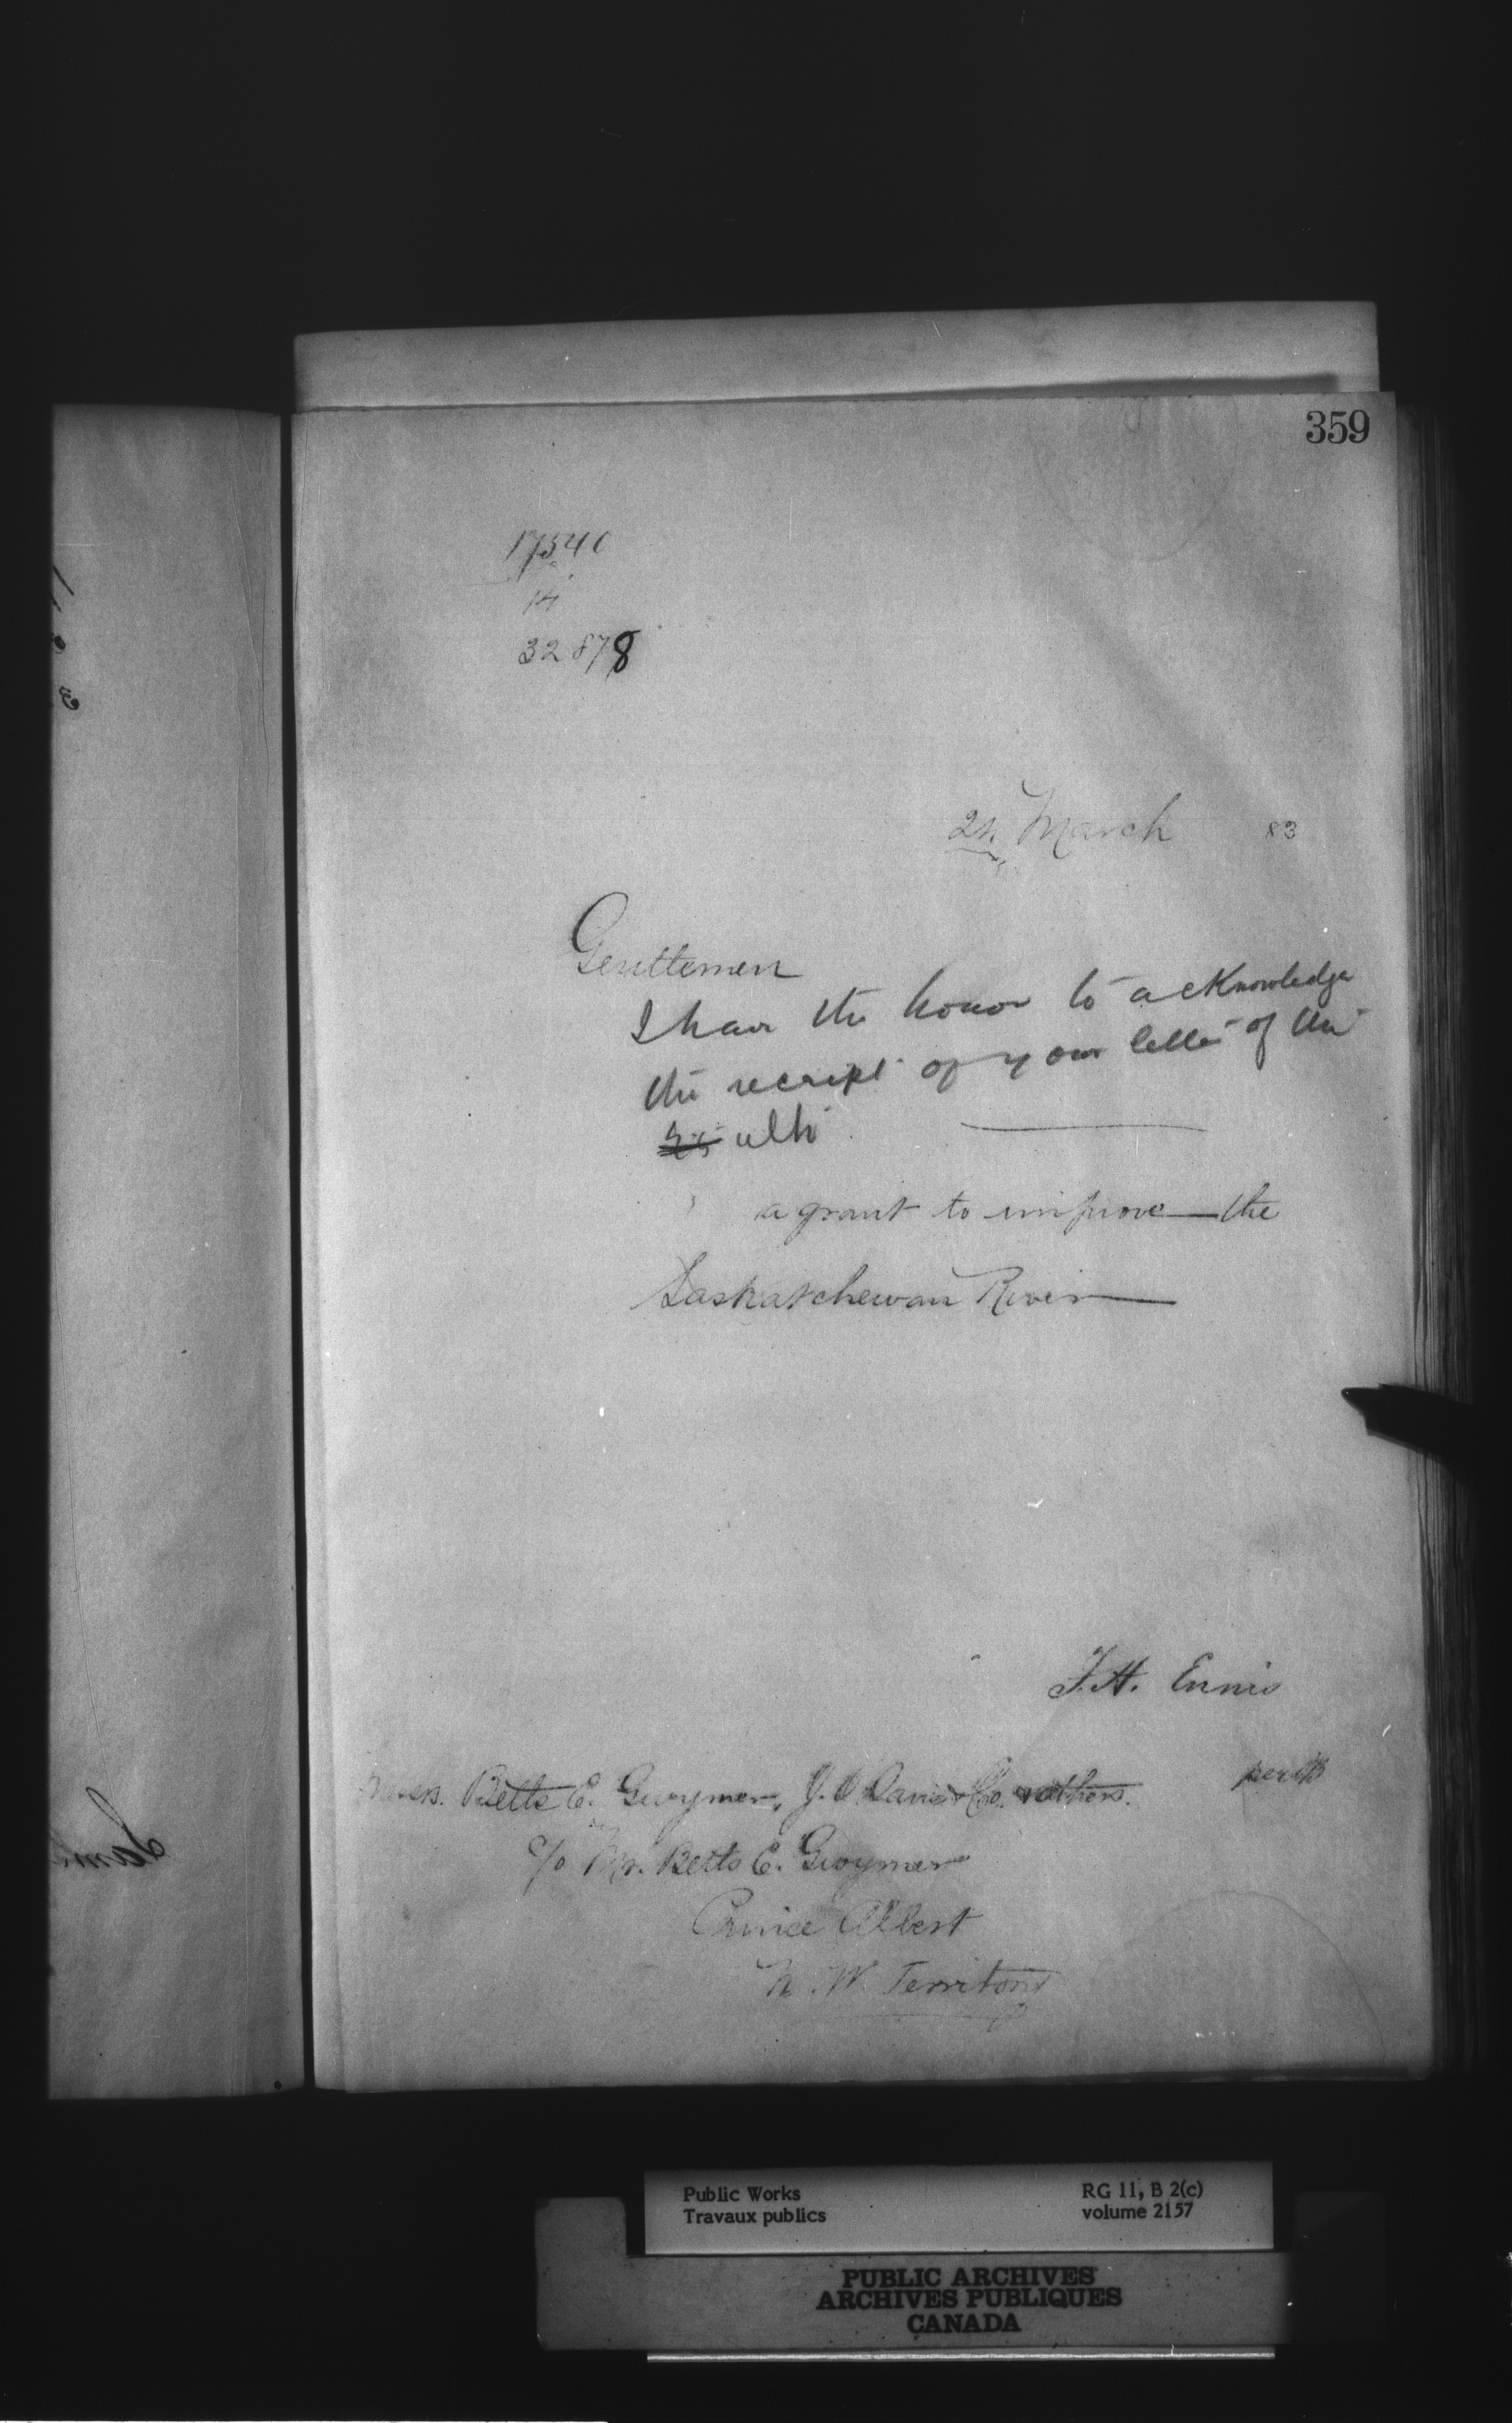 359
17540
14
32878
21 March 83
Gentlemen
I have the honor to acknowledge
the receipt of your letter of the
ulto
a grant to improve the
Saskatchewan River
F.H. Ennis
Messrs. Betts E. Gwymer, J.O. Davis & Co. & others.
c/o Mr. Betts E. Gwymer
Prince Albert
N. W. Territory
Public Works
Travaux publics
RG 11, B 2(c)
volume 2157
PUBLIC ARCHIVES
ARCHIVES PUBLIQUES
CANADA